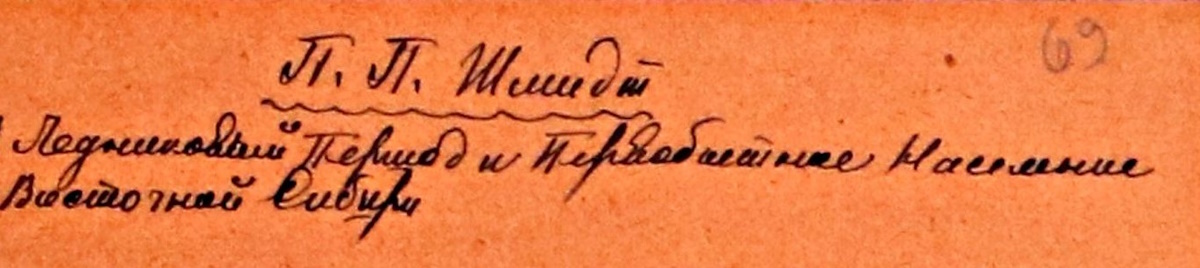 69
П. П. Шмидт
Ледниковый Период и Первобытное Население
Восточной Сибири